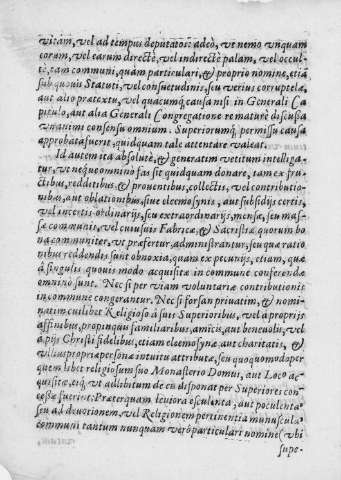 vitam, vel ad tempus deputatos: adeò, vt nemo vnquam
eorum, vel earum directè, vel indirectè palam, vel occul-
tè, tam communi, quam particulari, & proprio nomine, etiã
sub quouis Statuti, vel consuetudinis, seu verius corruptelæ,
aut alio prætextu, vel quacumq; causa nisi in Generali Ca
pitulo, aut alia Generali Congregatione re maturè discussa
vnanimi consensu omnium. Superiorumq; permissu causa
approbata fuerit, quidquam tale attentare valeat.
Id autem ita absolutè, & generatim vetitum intelliga-
tur, vt neq; eo omnino fas sit quidquam donare, tam ex fru-
ctibus, redditibus, & prouentibus, collectis, vel contributio-
nibus, aut oblationibus, siue eleemosynis, aut subsidijs certis,
vel incertis ordinarijs, seu extraordinarijs, mensæ, seu mas-
sæ communis, vel cuiusuis Fabricæ, & Sacristiæ quorum bo
na communiter, vt præfertur, administrantur, seu quæ ratio
nibus reddendis sunt obnoxia, quam ex pecunijs, etiam, quæ
à singulis quouis modo acquisitæ in commune conferendæ
omnino sunt. Nec si per viam voluntariæ contributionis
in commune congerantur. Nec si forsan priuatim, & nomi-
natim cuilibet Religioso à suis Superioribus, vel à proprijs
affinibus, propinquis familiaribus, amicis, aut beneuolis, vel
à pijs Christi fidelibus, etiam eleemosynæ, aut charitatis, &
illius propriæ personæ intuitu attributæ, seu quoquomodo per
quem libet religiosum suo Monasterio Domui, aut Loco ac-
quisitæ, etiã, vt ad libitum de eis disponat per Superiores con
cessæ fuerint: Præterquam leuiora esculenta, aut poculenta,
seu ad deuotionem, vel Religionem pertinentia munuscula
communi tantum nunquam verò particulari nomine (vbi
supe-